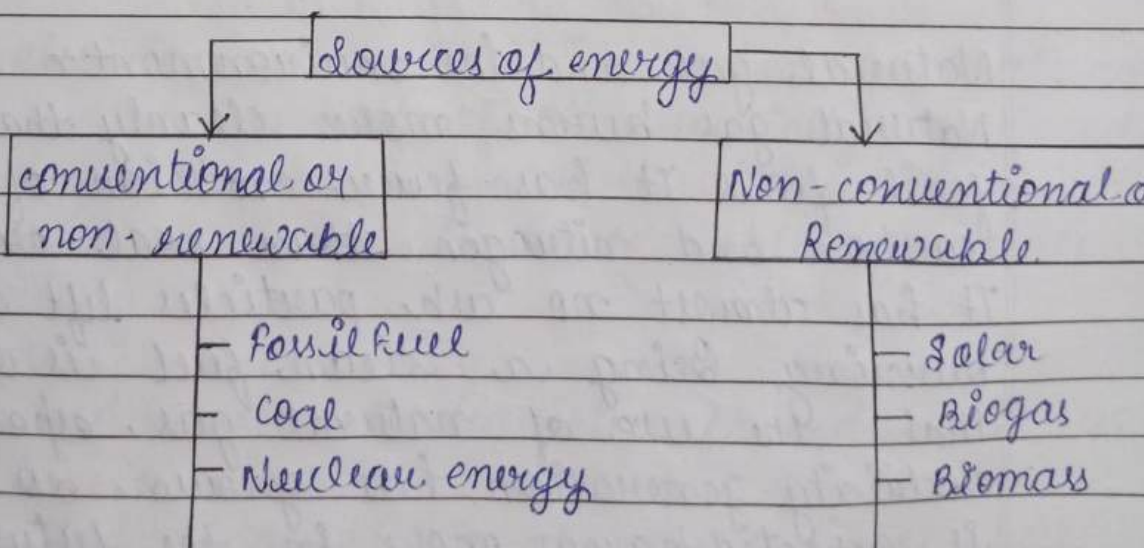 Sources of energy
conventional or
non-renewable
Non-conventional o
Renewable.
Fossil fuel
coal
Nuclear energy
Solar
Biogas
Biomass